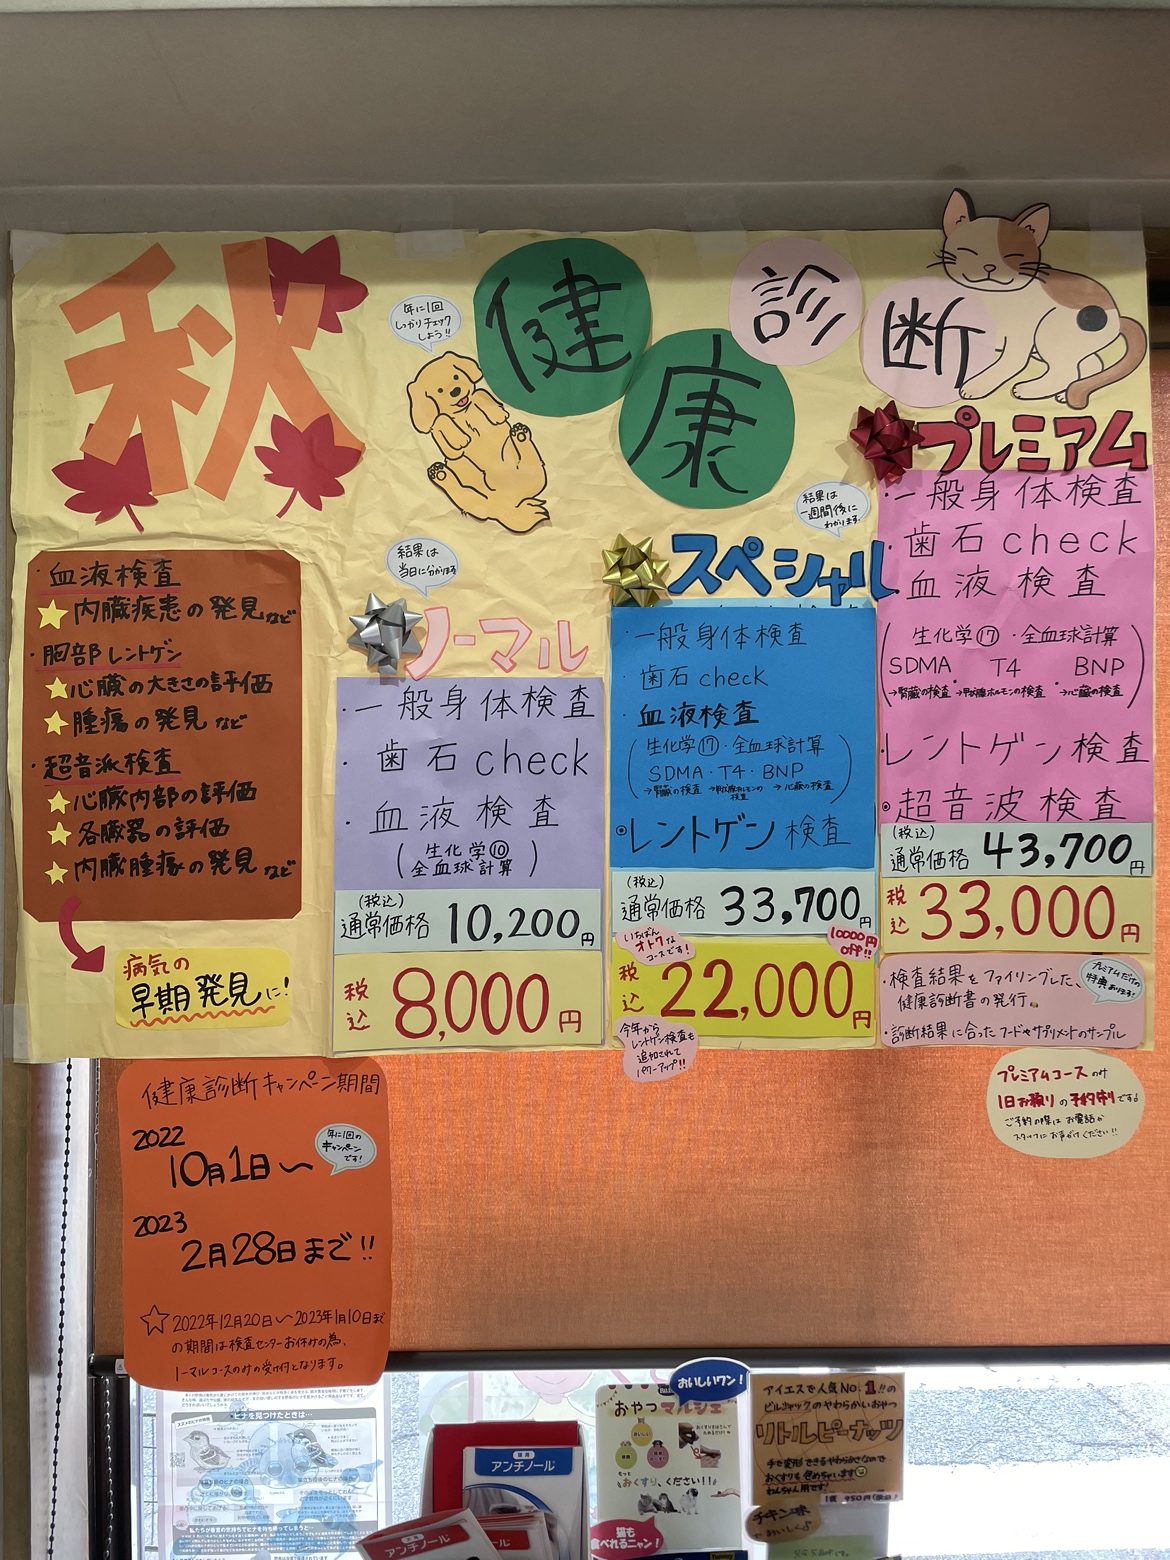 秋
健康診断
年に1回
しっかりチェック
しよう!!
・血液検査
内臓疾患の発見など
・胸部レントゲン
心臓の大きさの評価
腫瘍の発見など
・超音派検査
心臓内部の評価
各臓器の評価
内臓腫瘍の発見など
病気の
早期発見に!
結果は
当日に分かります
ノーマル
・一般身体検査
・歯石check
・血液検査
(生化学⑩
全血球計算)
(税込)
通常価格 10,200円
税込 8,000円
結果は
一週間後に
わかります。
スペシャル
・一般身体検査
・歯石check
・血液検査
(生化学⑰・全血球計算
SDMA・T4・BNP
→腎臓の検査 →甲状腺ホルモンの検査 →心臓の検査)
◎レントゲン検査
(税込)
通常価格 33,700円
いちばん
オトクな
コースです!
10000円
off!!
税込 22,000円
今年から
レントゲン検査も
追加されて
パワーアップ!!
プレミアム
・一般身体検査
・歯石check
・血液検査
(生化学⑰・全血球計算
SDMA・T4・BNP
→腎臓の検査 →甲状腺ホルモンの検査 →心臓の検査)
・レントゲン検査
◎超音波検査
(税込)
通常価格 43,700円
税込 33,000円
・検査結果をファイリングした、
健康診断書の発行。
プレミアムだけの
特典あります!
・診断結果に合ったフードやサプリメントのサンプル
プレミアムコースのみ
1日お預りの予約制です。
ご予約の際はお電話か
スタッフにお声がけください!!
健康診断キャンペーン期間
2022
10月1日〜
年に1回の
キャンペーン
です!
2023
2月28日まで!!
☆2022年12月20日〜2023年1月10日まで
の期間は検査センターお休みの為、
ノーマルコースのみの受付となります。
ヒナを見つけたときは…
アンチノール
アンチノール
おいしいワン!
おやつマルシェ
もっと
おくすり、ください!!
猫も
食べれるニャン!
アイエスで人気NO.1!!の
ビルジャックのやわらかいおやつ
リトルピーナッツ
手で変形できるやわらかさなので
おくすりも包めちゃいます
わんちゃん用です!
チキン味